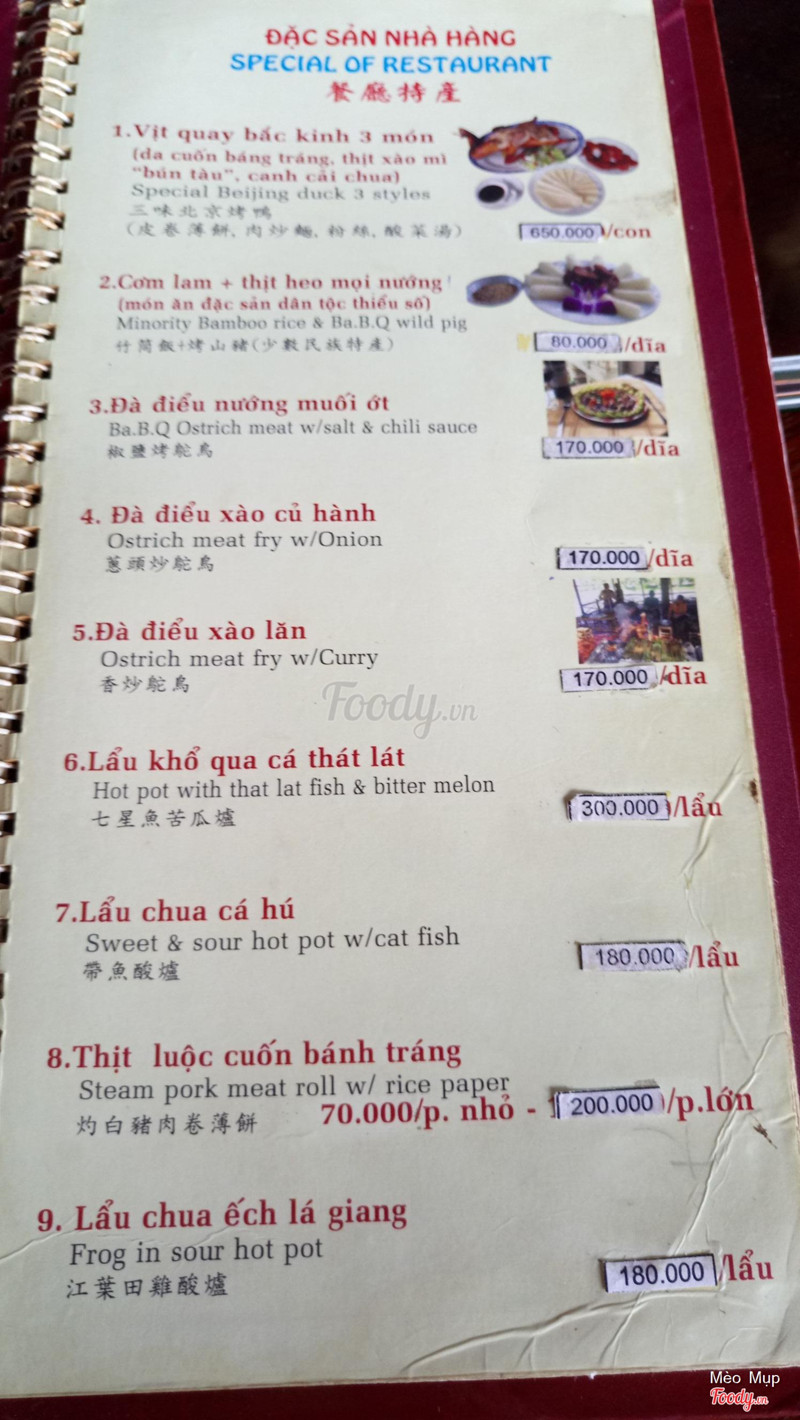 ĐẶC SẢN NHÀ HÀNG
SPECIAL OF RESTAURANT
餐廳特產
1.Vịt quay bắc kinh 3 món
(da cuốn báng tráng, thịt xào mì
"bún tàu", canh cải chua)
Special Beijing duck 3 styles
三味北京烤鴨
(皮卷薄餅,肉炒麵,粉絲,酸菜湯)
650.000/con
2.Cơm lam + thịt heo mọi nướng
(món ăn đặc sản dân tộc thiểu số)
Minority Bamboo rice & Ba.B.Q wild pig
竹筒飯+烤山豬(少數民族特產)
80.000/dĩa
3.Đà điểu nướng muối ớt
Ba.B.Q Ostrich meat w/salt & chili sauce
椒鹽烤鴕鳥
170.000/dĩa
4. Đà điểu xào củ hành
Ostrich meat fry w/Onion
蔥頭炒鴕鳥
170.000/dĩa
5.Đà điểu xào lăn
Ostrich meat fry w/Curry
香炒鴕鳥
170.000/dĩa
Foody.vn
6.Lẩu khổ qua cá thát lát
Hot pot with that lat fish & bitter melon
七星魚苦瓜爐
300.000/lẩu
7.Lẩu chua cá hú
Sweet & sour hot pot w/cat fish
帶魚酸爐
180.000/lẩu
8.Thịt luộc cuốn bánh tráng
Steam pork meat roll w/ rice paper
灼白豬肉卷薄餅
70.000/p. nhỏ - 200.000/p.lớn
9. Lẩu chua ếch lá giang
Frog in sour hot pot
江葉田雞酸爐
180.000/lẩu
Mèo Mụp
Foody.vn